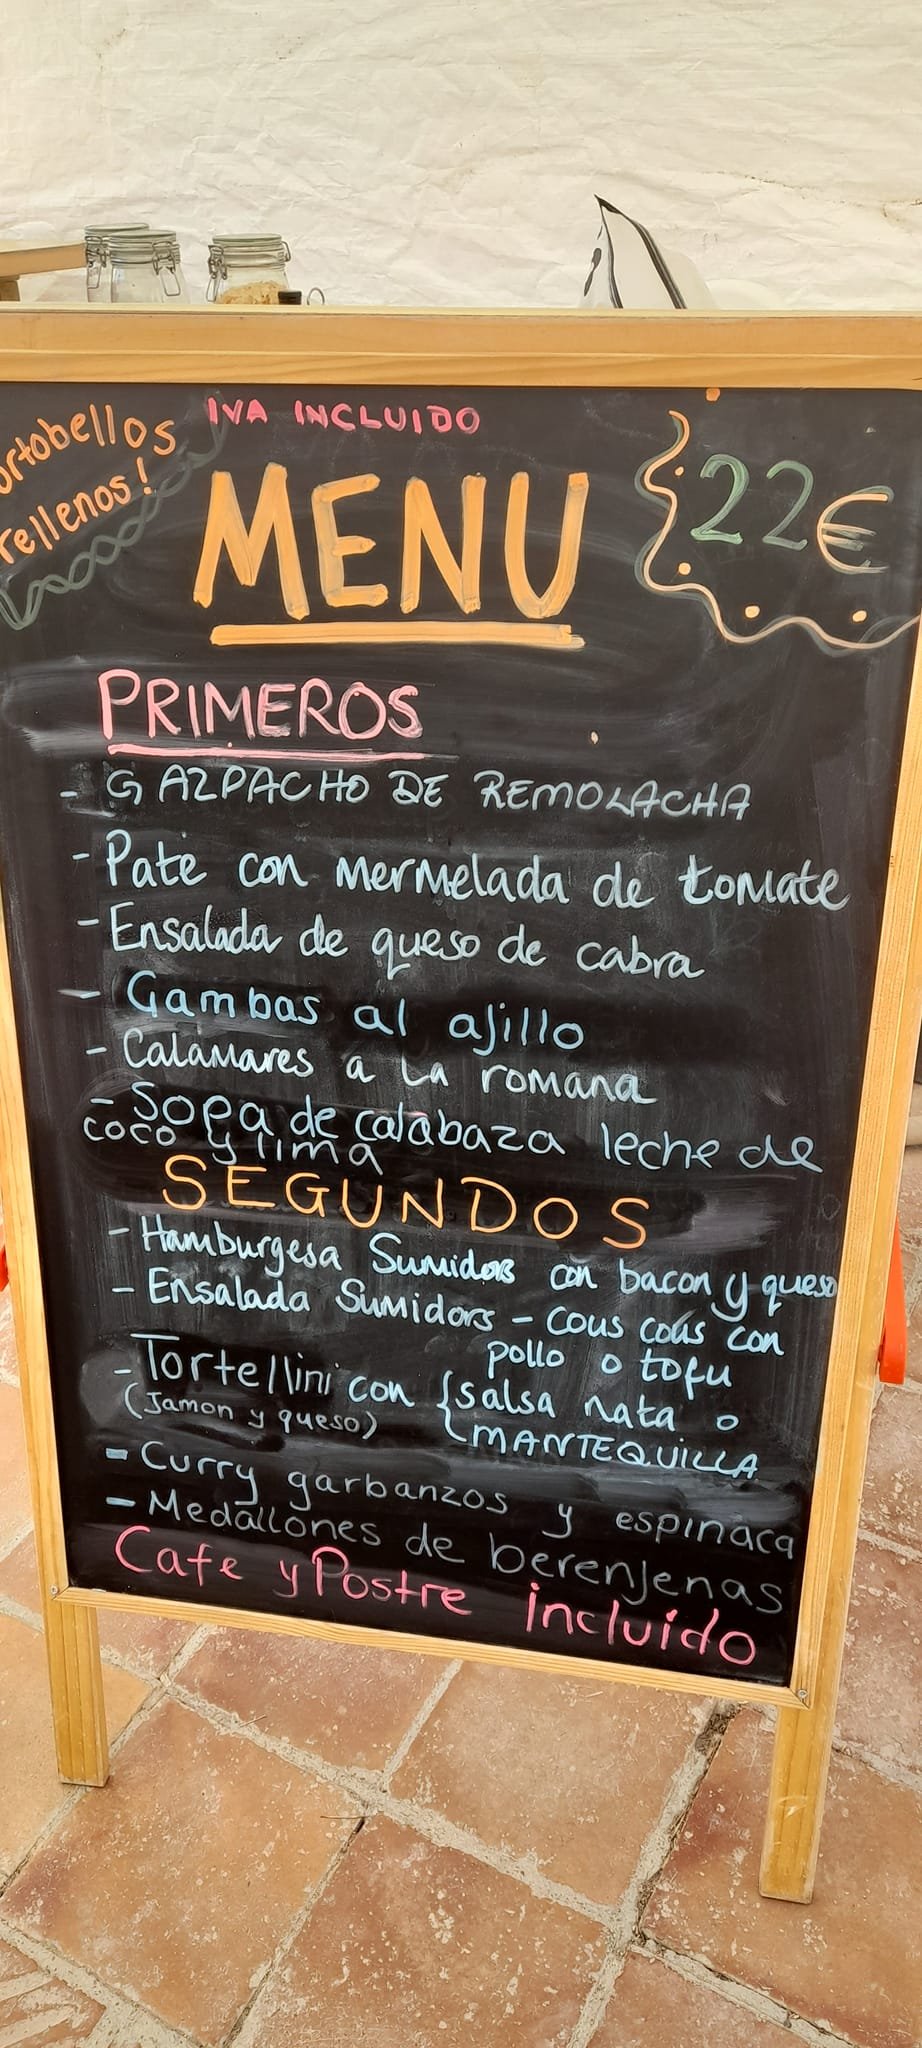 IVA INCLUIDO
ortobellos
rellenos!
MENU
22€
PRIMEROS
- GAZPACHO DE REMOLACHA
- Pate con mermelada de tomate
- Ensalada de queso de cabra
- Gambas al ajillo
- Calamares a la romana
- Sopa de calabaza leche de
coco y lima
SEGUNDOS
- Hamburgesa Sumidors con bacon y queso
- Ensalada Sumidors - cous cous con
pollo o tofu
- Tortellini con { salsa nata o
(Jamon y queso) MANTEQUILLA
- Curry garbanzos y espinaca
- Medallones de berenjenas
Cafe y Postre incluído